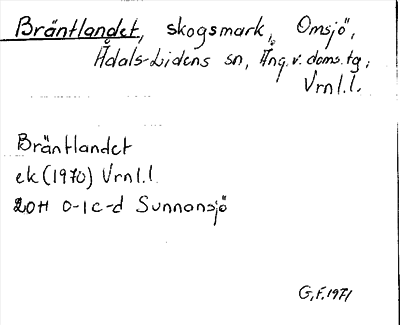 Bräntlandet, skogsmark, Omsjö,
Ådals-Lidens sn, Ång.v.doms.tg,
Vrnl.l.
Bräntlandet
ek (1970) Vrnl.l.
20H 0-1 c-d Sunnansjö
G.F. 1971